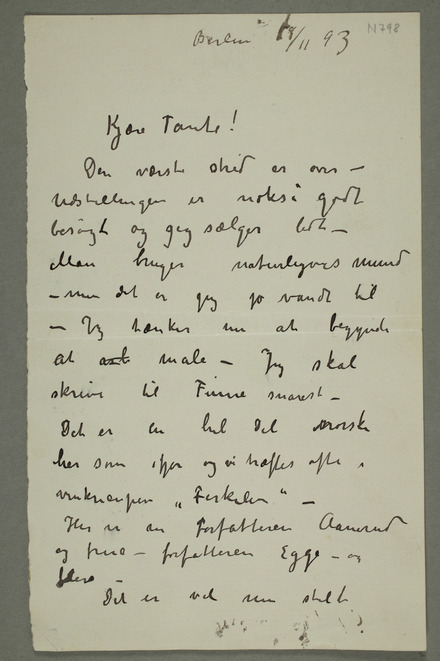 Berlin 18/11 93
N 798
Kjære Tante!
Den værste strid er over –
Udstillingen er nokså godt
besøgt og jeg sælger lidt –
Man bruger naturligvis mund
– men det er jeg jo vandt til
– Jeg tænker nu at begynde
at male – Jeg skal
skrive til Finne snarest –
Det er en hel Del norske
her som ifjor og vi træffes ofte i
vinkneipen „Ferkelen" –
Her er nu Forfatteren Aanrud
og frue – forfatteren Egge – og
flere –
Det er vel nu stelt